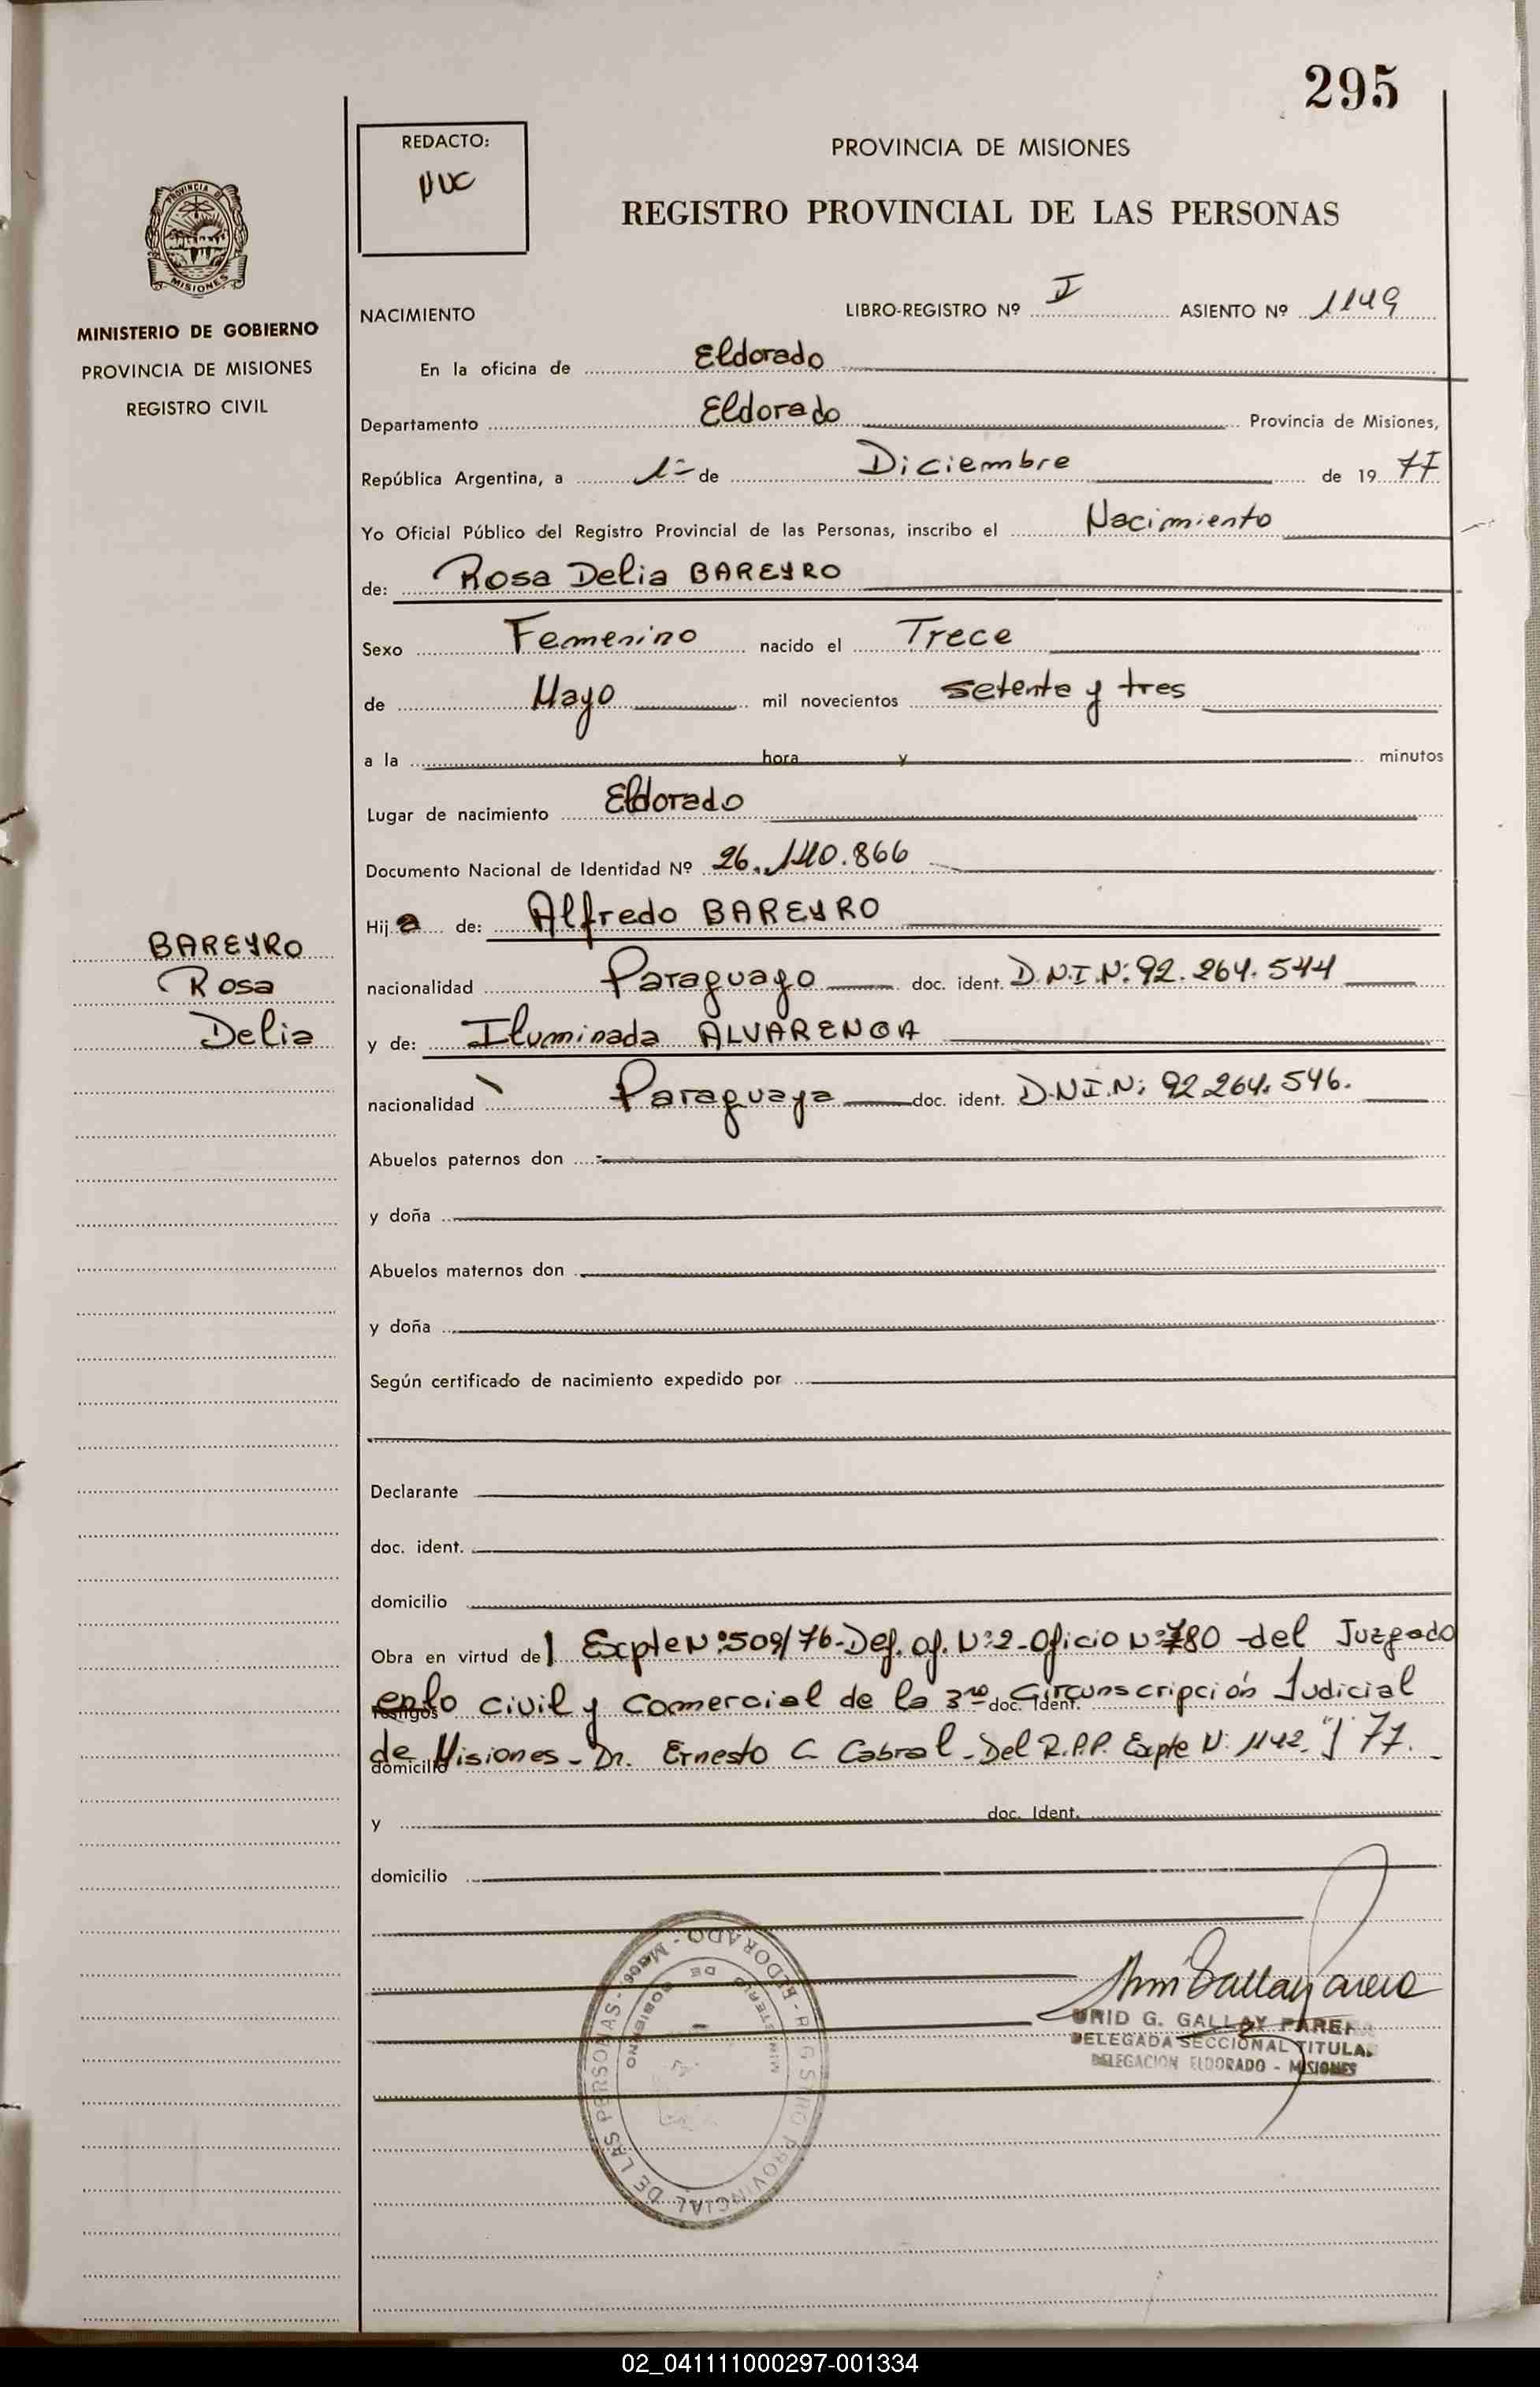 295
REDACTO:
NUC
PROVINCIA DE MISIONES
REGISTRO PROVINCIAL DE LAS PERSONAS
PROVINCIA DE
MISIONES
MINISTERIO DE GOBIERNO
PROVINCIA DE MISIONES
REGISTRO CIVIL
NACIMIENTO LIBRO-REGISTRO Nº II ASIENTO Nº 1149
En la oficina de Eldorado
Departamento Eldorado Provincia de Misiones,
República Argentina, a 1º de Diciembre de 19 77
Yo Oficial Público del Registro Provincial de las Personas, inscribo el Nacimiento
de: Rosa Delia BAREYRO
Sexo Femenino nacido el Trece
de Mayo mil novecientos setenta y tres
a la hora y minutos
Lugar de nacimiento Eldorado
Documento Nacional de Identidad Nº 26.140.866
Hija de: Alfredo BAREYRO
BAREYRO
Rosa
Delia
nacionalidad Paraguayo doc. ident. D.N.I.N: 92.264.544
y de: Iluminada ALVARENGA
nacionalidad Paraguaya doc. ident. D.N.I.N: 92.264.546.
Abuelos paternos don
y doña
Abuelos maternos don
y doña
Según certificado de nacimiento expedido por
Declarante
doc. ident.
domicilio
Obra en virtud del Expte Nº 509/76-Def. of. Nº 2-Oficio Nº 780 -del Juzgado
Testigos en lo civil y Comercial de la 3ra doc. Ident. Circunscripción Judicial
domicilio de Misiones - Dr. Ernesto C. Cabral - Del R.P.P. Expte N: 1142 "J" 77.
y doc. Ident.
domicilio
REGISTRO PROVINCIAL DE LAS PERSONAS - ELDORADO -
MINISTERIO DE GOBIERNO
URID G. GALLAY PAREA
DELEGADA SECCIONAL TITULAR
DELEGACION ELDORADO - MISIONES
02_041111000297-001334